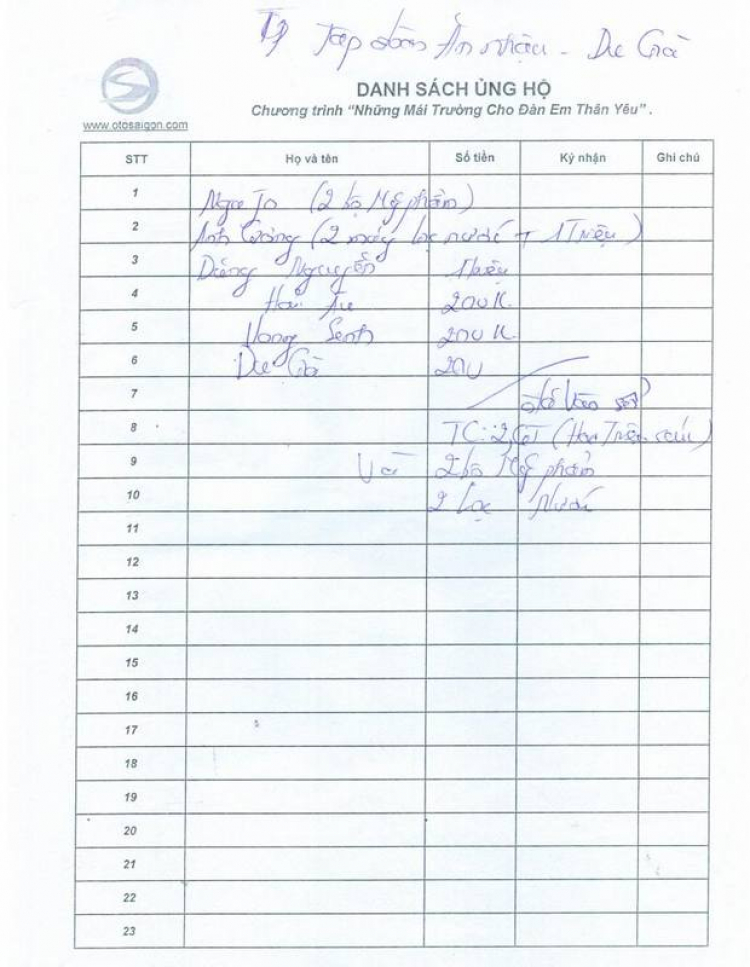 Tập đoàn Ăn nhậu - Du Già
DANH SÁCH ỦNG HỘ
Chương trình “Những Mái Trường Cho Đàn Em Thân Yêu” .
www.otosaigon.com
STT Họ và tên Số tiền Ký nhận Ghi chú
1 (2 bộ Mỹ phẩm)
2 Anh Cường (2 máy lọc nước + 1 Triệu)
3 Dũng Nguyễn 1 triệu
4 200 K.
5 200 K.
6 Du Già 200
7 vào sổ
8 TC: (Hai Triệu sáu)
9 Và 2 bộ Mỹ phẩm
10 2 lọc Nước
11
12
13
14
15
16
17
18
19
20
21
22
23